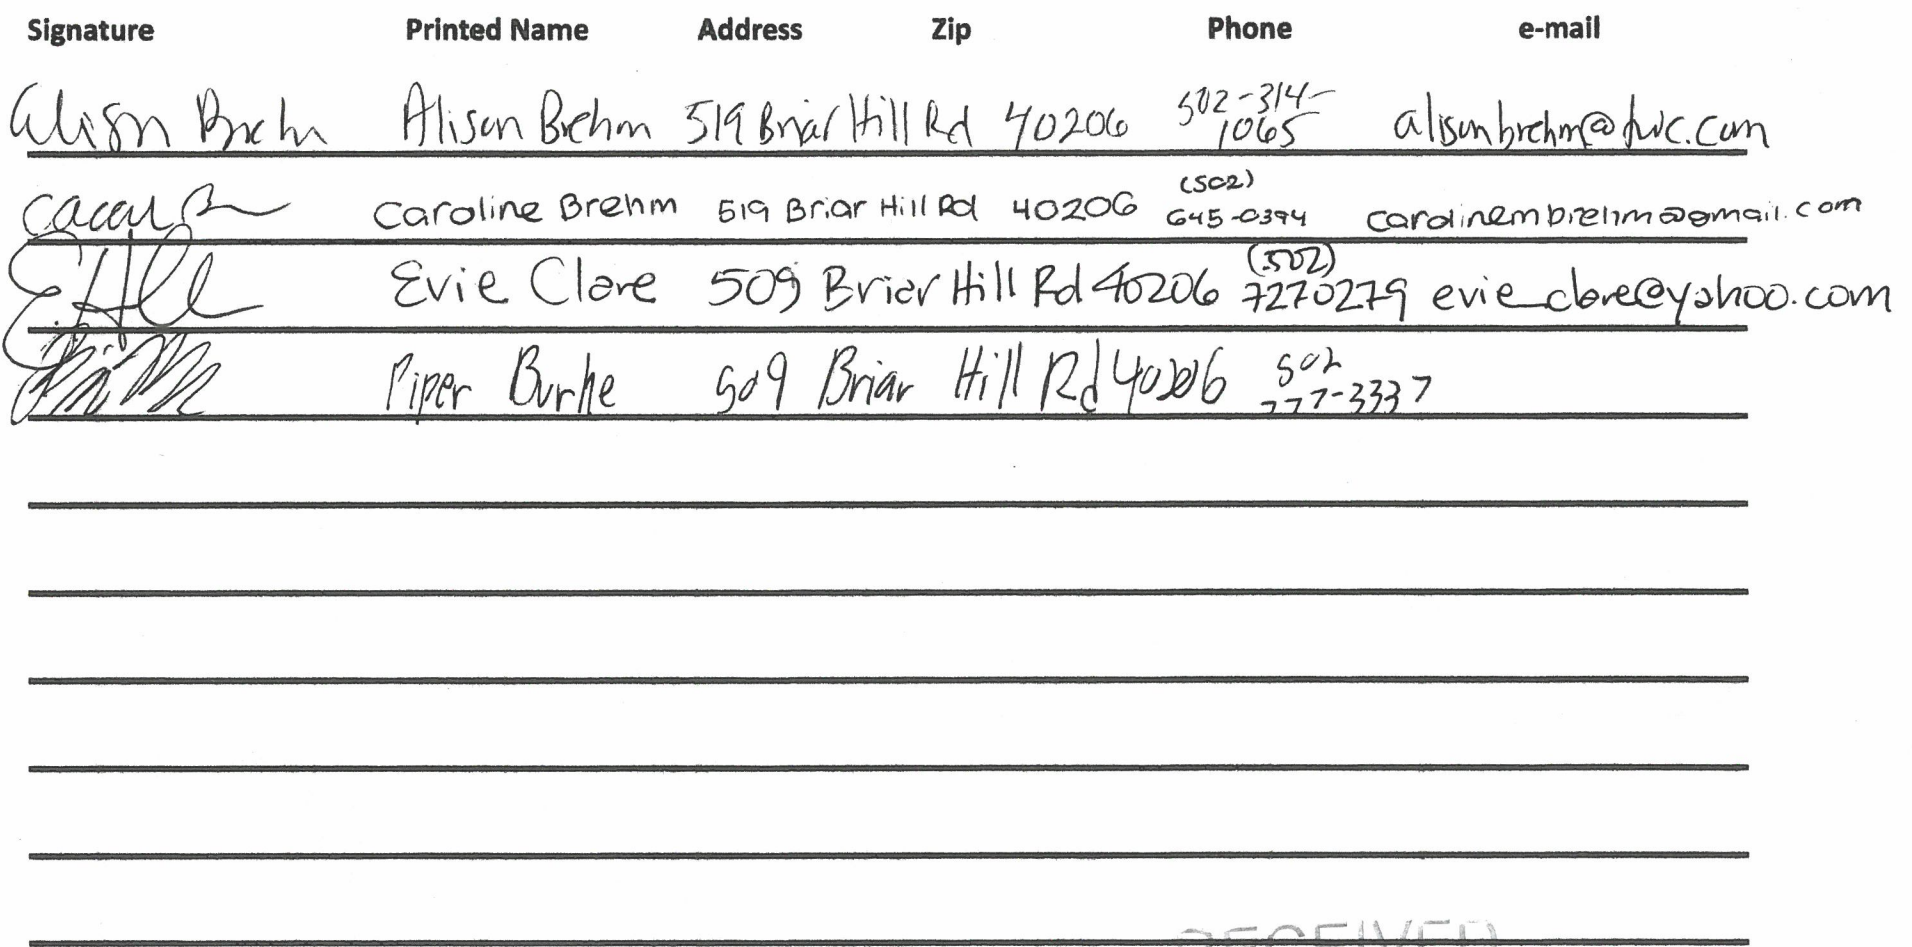 Signature Printed Name Address Zip Phone e-mail
Alison Brehm Alison Brehm 519 Briar Hill Rd 40206 502-314-1065 alisonbrehm@twc.com
Caroline Brehm 519 Briar Hill Rd 40206 (502) 645-0394 carolinembrehm@gmail.com
Evie Clare 509 Briar Hill Rd 40206 (502) 7270279 evie_clare@yahoo.com
Piper Burke 509 Briar Hill Rd 40206 502 777-3337
RECEIVED